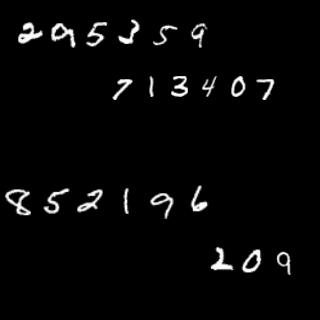 295359
713407
852196
209